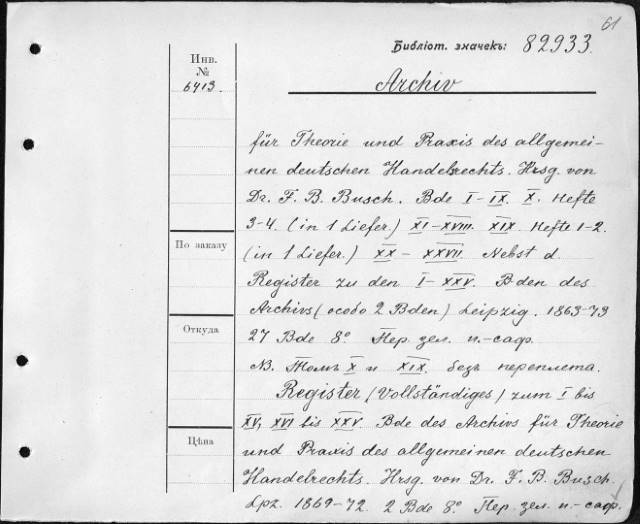 61
Библіот. значекъ: 82933.
Инв.
№
6413.
Archiv
für Theorie und Praxis des allgemei-
nen deutschen Handelsrechts. Hrsg. von
Dr. F. B. Busch. Bde I-IX. X. Hefte
3-4. (in 1 Liefer.) XI-XVIII. XIX. Hefte 1-2.
(in 1 Liefer.) XX - XXVII. Nebst d.
Register zu den I-XXV. B-den des
Archivs (особо 2 Bden) Leipzig. 1863-73
27 Bde 8°. Пер. зел. п.-саф.
NB. Томъ X и XIX. безъ переплета.
Register (Vollständiges) zum I bis
XV, XVI bis XXV. Bde des Archivs für Theorie
und Praxis des allgemeinen deutschen
Handelrechts. Hrsg. von Dr. F. B. Busch.
Lpz. 1869-72. 2 Bde 8°. Пер. зел. п.-саф.
По заказу
Откуда
Цѣна